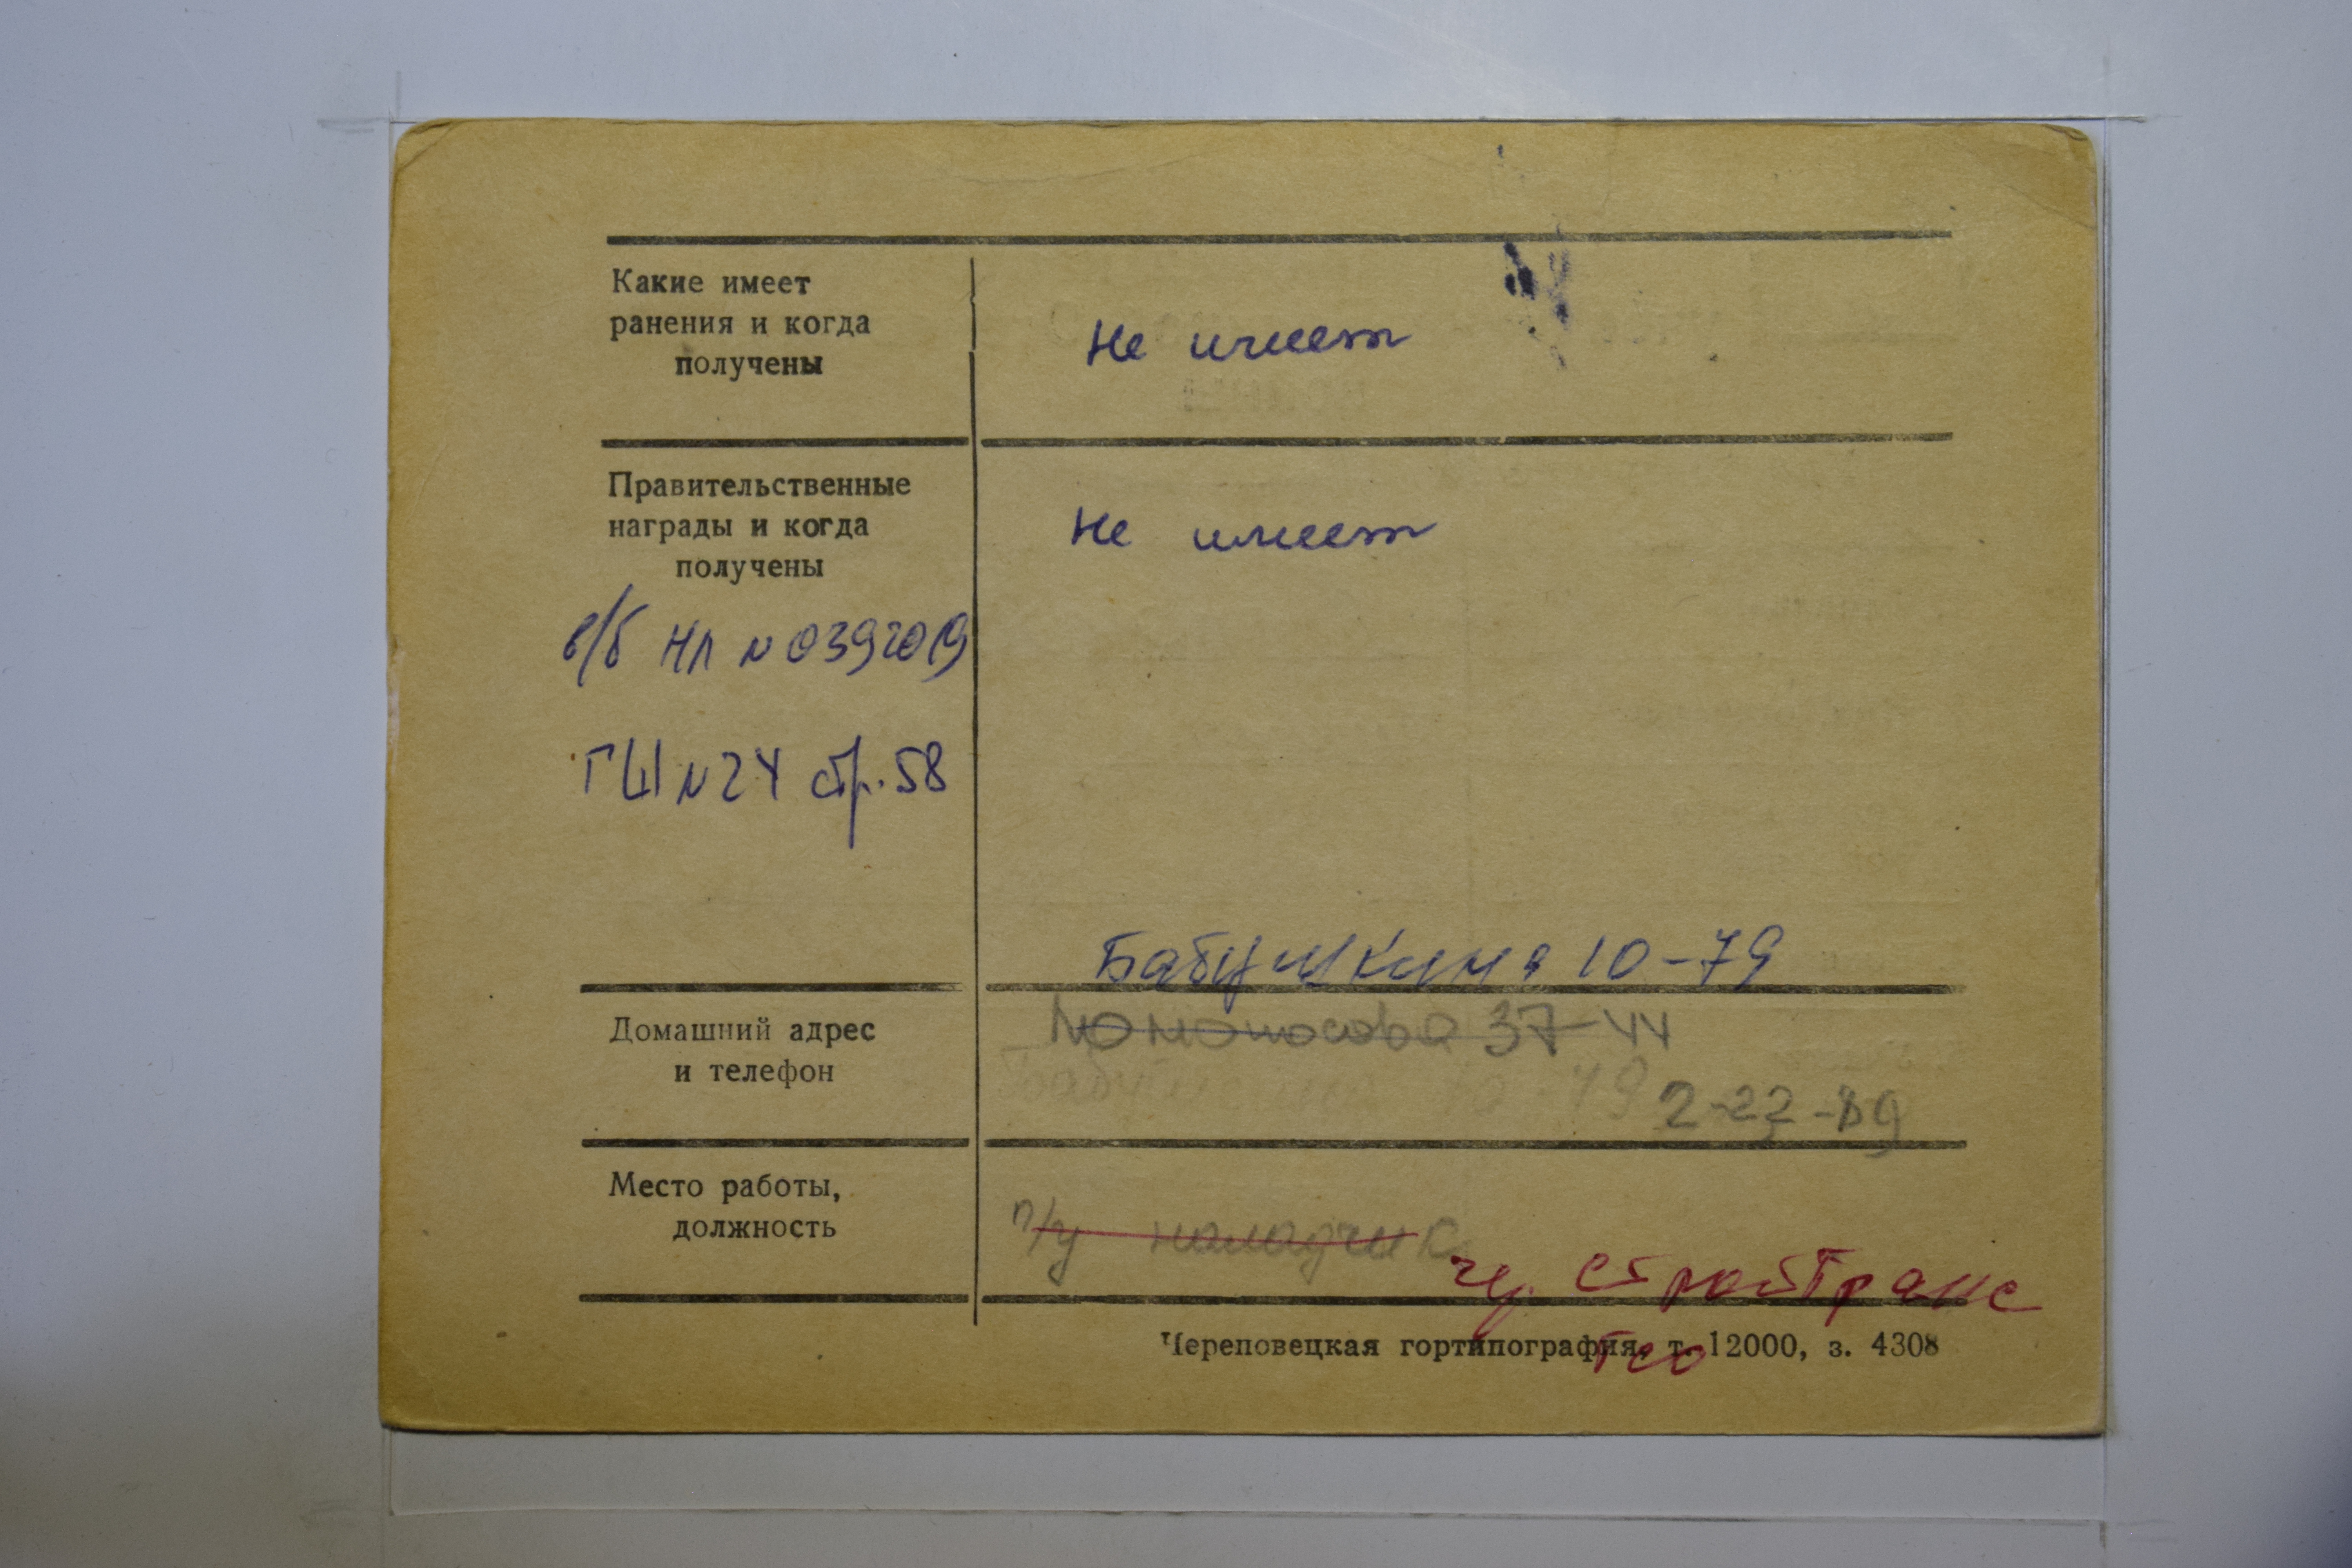 Какие имеет
ранения и когда
получены
Не имеет
Правительственные
награды и когда
получены
Не имеет
в/б НЛ N 0392019
ГШ N 24 стр. 58
Бабушкина 10-79
Домашний адрес
и телефон
Ломоносова 37-44
Бабушкина 10-79
2-22-89
Место работы,
должность
п/у наладчик
чер. Стройтранс
Череповецкая гортипография, т. 12000, з. 4308